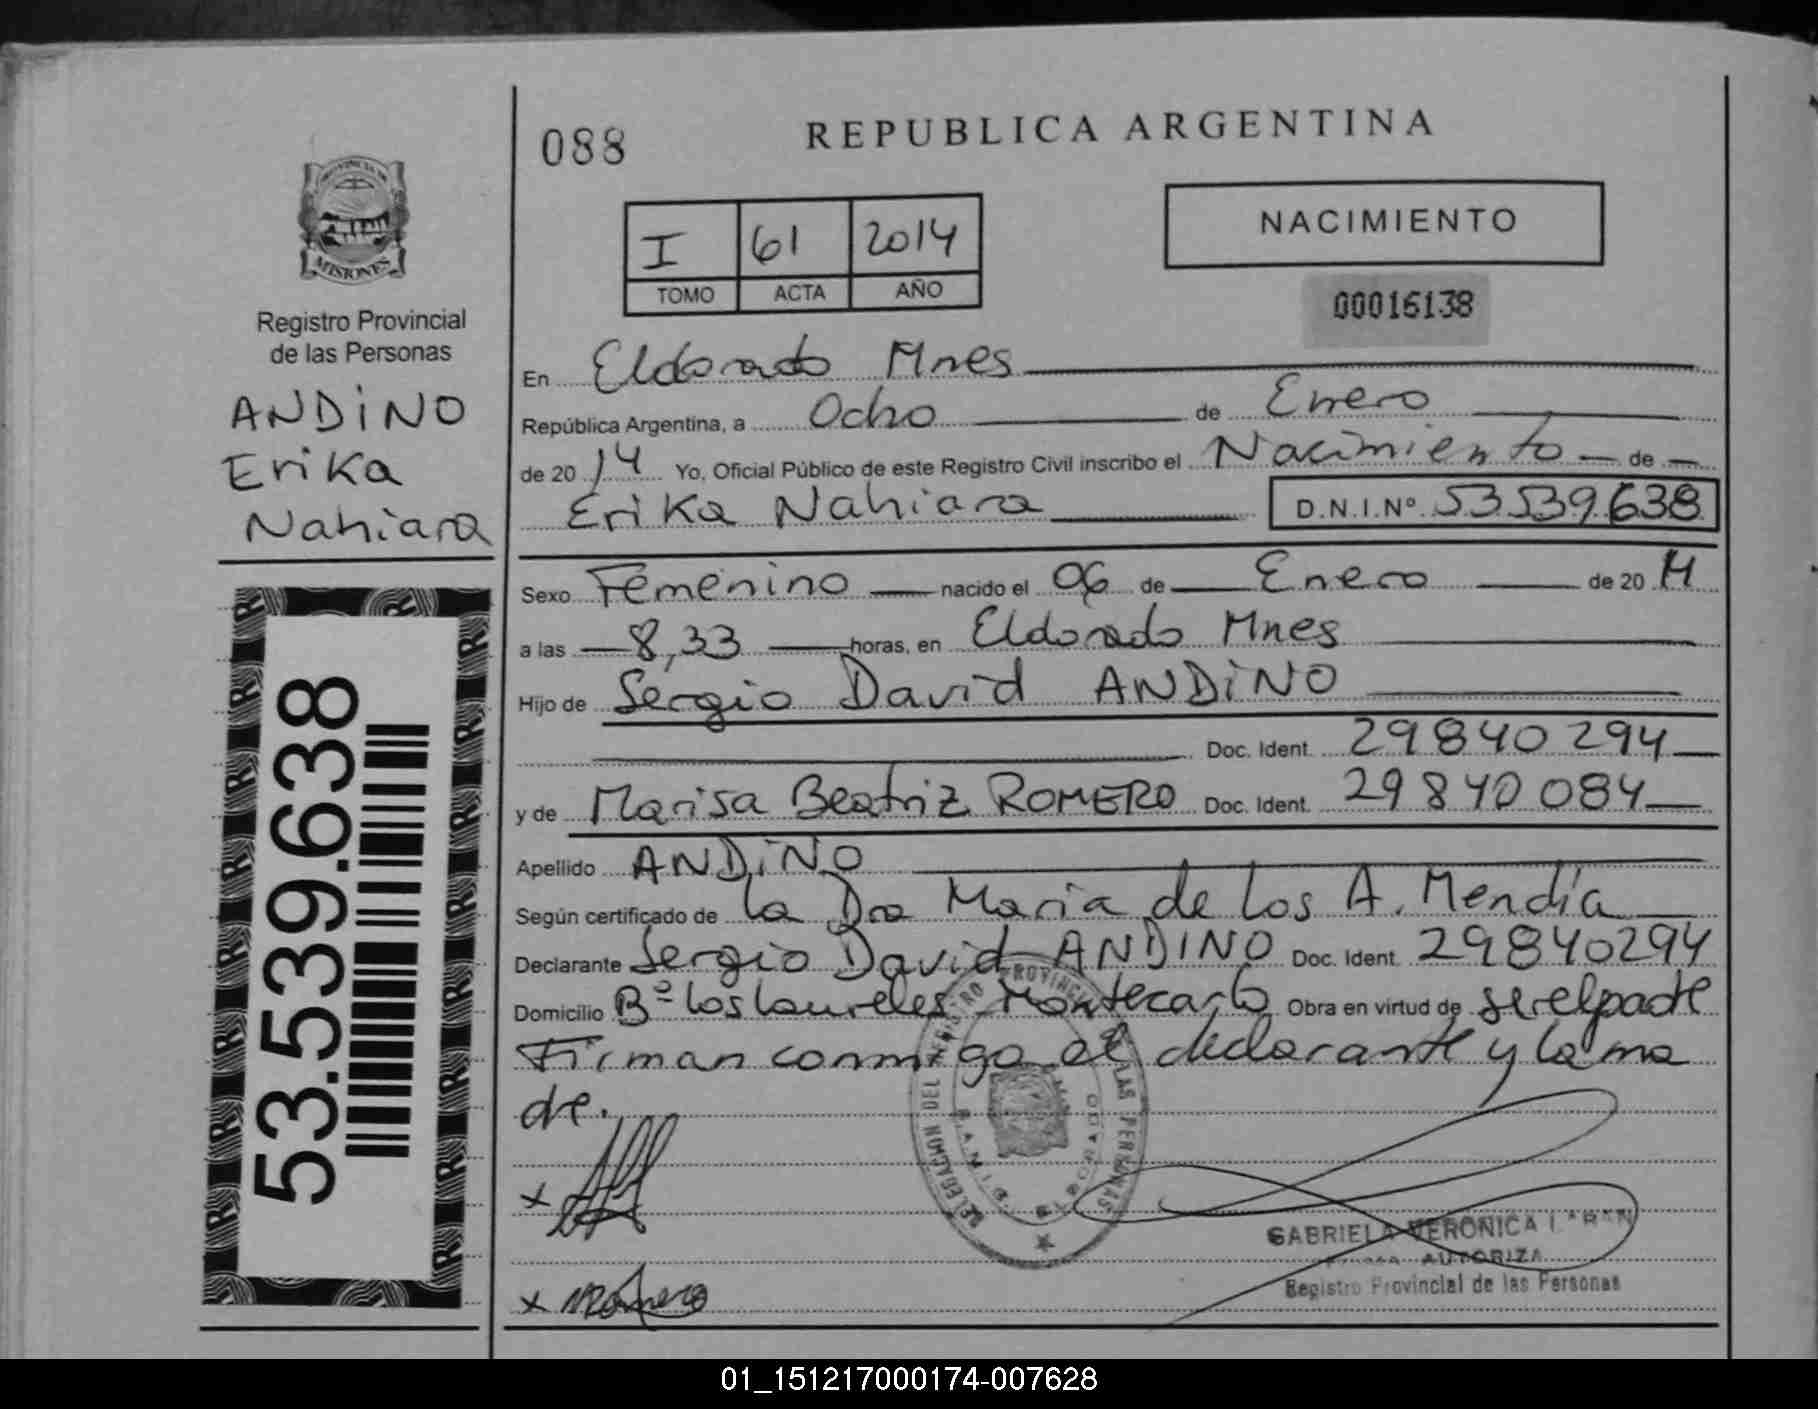 088
REPUBLICA ARGENTINA
PROVINCIA DE
MISIONES
Registro Provincial
de las Personas
ANDINO
Erika
Nahiara
53.539.638
I 61 2014
TOMO ACTA AÑO
NACIMIENTO
00016138
En Eldorado Mnes
República Argentina, a Ocho de Enero
de 2014 Yo, Oficial Público de este Registro Civil inscribo el Nacimiento de
Erika Nahiara D.N.I.Nº 53539638
Sexo Femenino nacido el 06 de Enero de 2014
a las 8,33 horas, en Eldorado Mnes
Hijo de Sergio David ANDINO
Doc. Ident. 29840294
y de Marisa Beatriz ROMERO Doc. Ident. 29840084
Apellido ANDINO
Según certificado de la Dra Maria de los A. Mendía
Declarante Sergio David ANDINO Doc. Ident. 29840294
Domicilio Bº los laureles Montecarlo Obra en virtud de ser el padre
Firman conmigo el declarante y la ma
de.
DELEGACION DEL REGISTRO PROVINCIAL DE LAS PERSONAS
ELDORADO
x
x Romero
GABRIELA VERONICA
AUTORIZA
Registro Provincial de las Personas
01_151217000174-007628